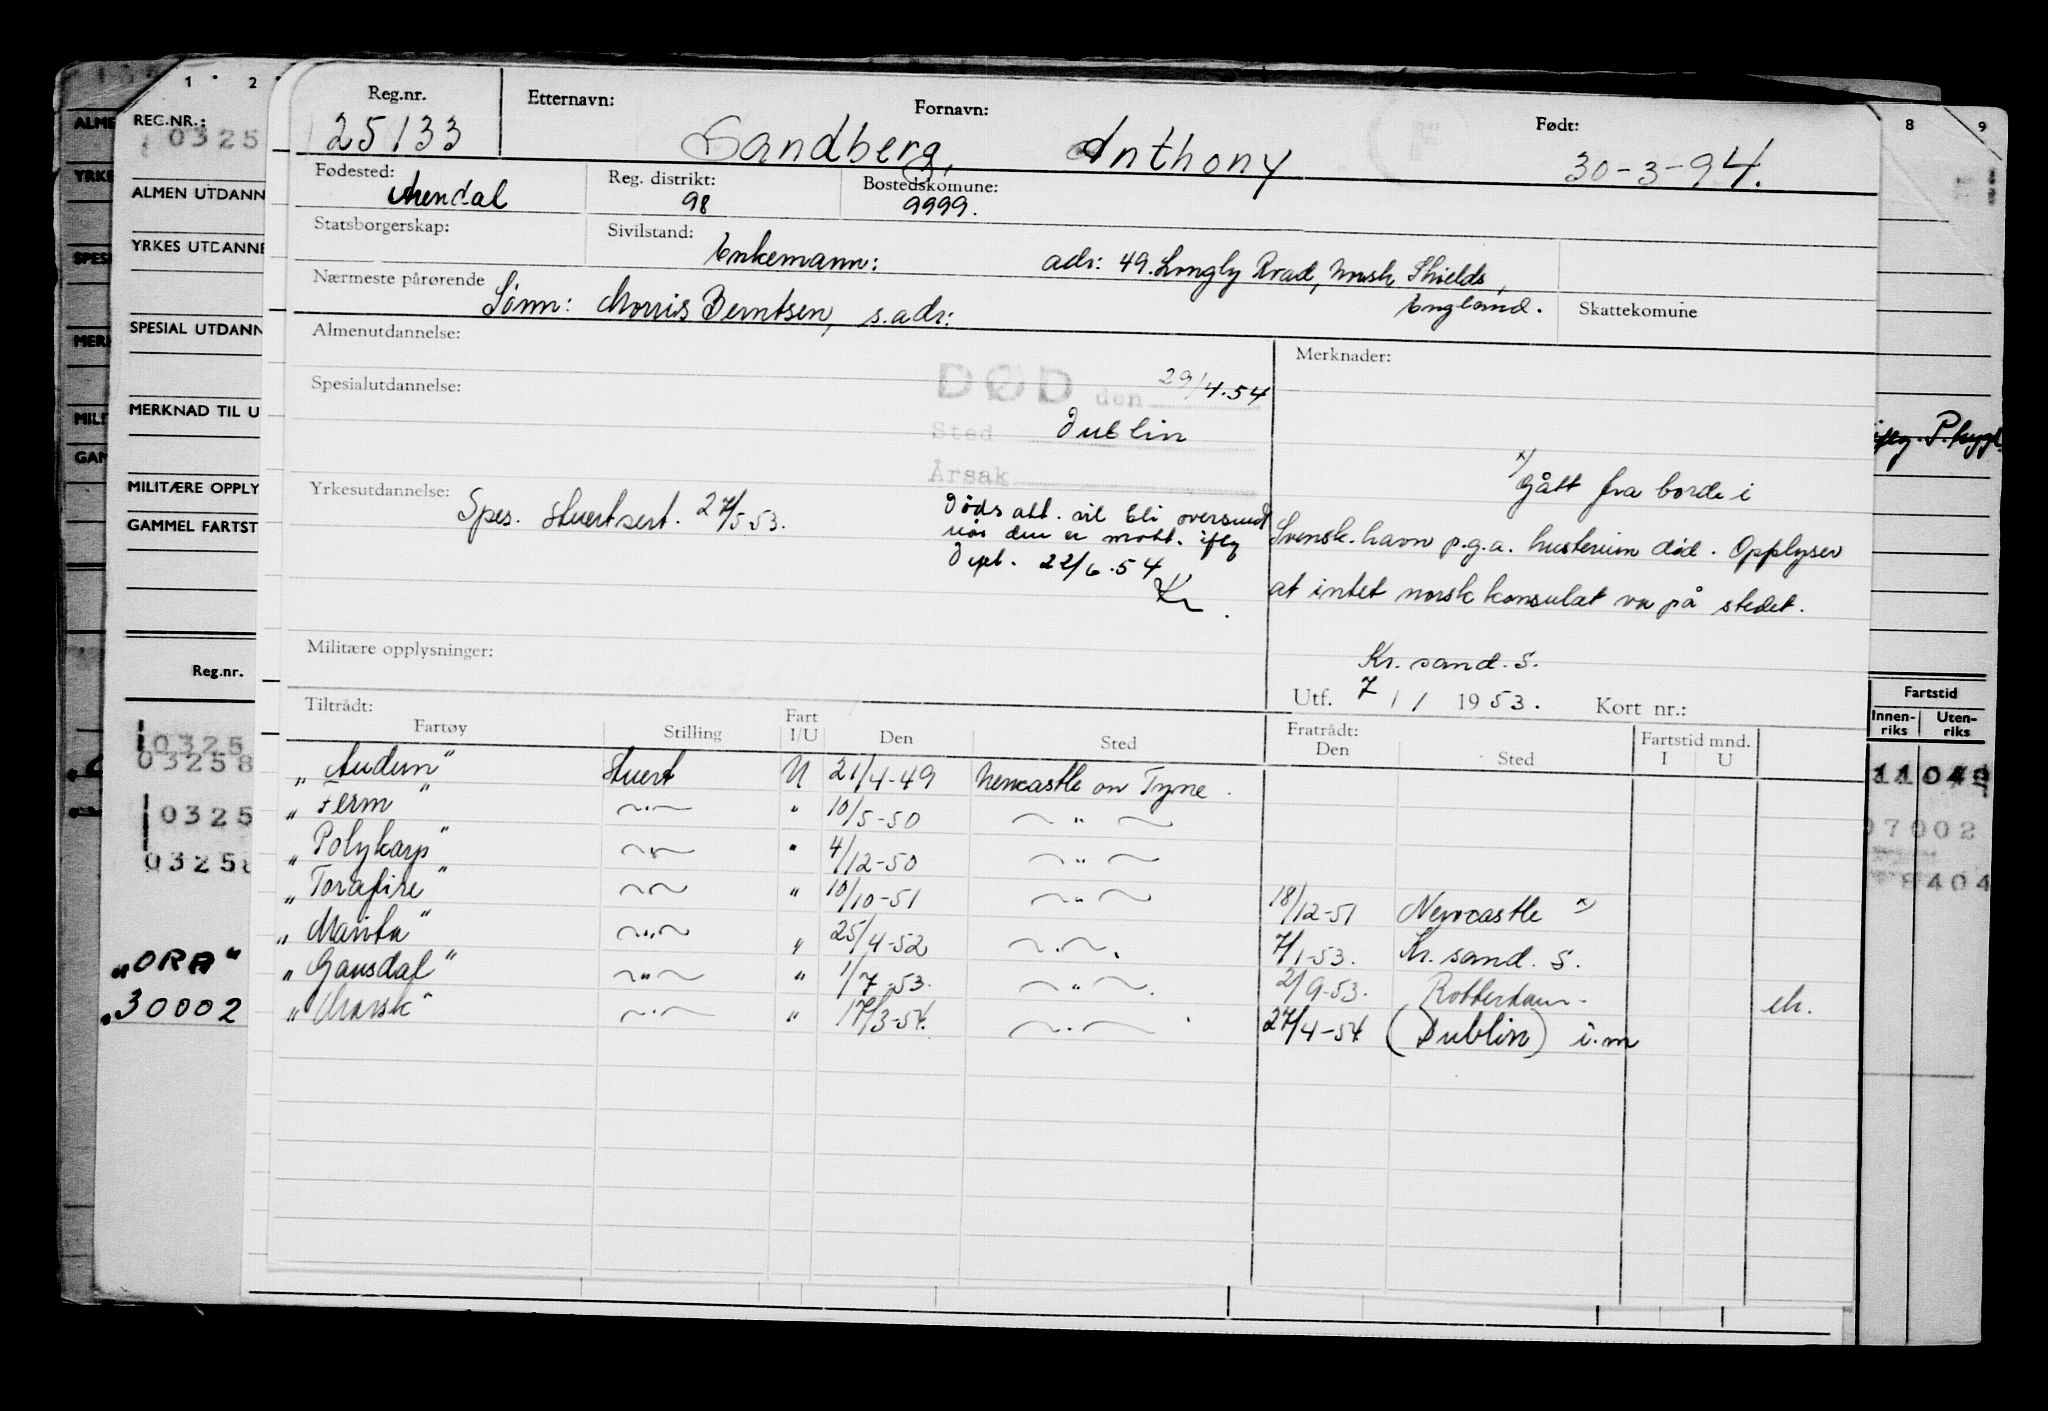 1 2
REG.NR.:
0325
ALMEN UTDANN
YRKES UTDANNE
SPESIAL UTDANN
MERKNAD TIL U
MILITÆRE OPPLY
GAMMEL FARTST
Reg.nr.
0325
03258
0325
03258
"ORA"
30002
Reg.nr. Etternavn: Fornavn: Født:
25133 Sandberg, Anthony 30-3-94.
Fødested: Reg. distrikt: Bostedskomune:
Arendal 98 9999.
Statsborgerskap: Sivilstand: Enkemann: adr: 49. Longly Road, North Shields,
England.
Nærmeste pårørende Sønn: Morris Berntsen, s.adr: Skattekomune
Almenutdannelse: Merknader:
Spesialutdannelse: DØD den 29/4.54
Sted Dublin
Årsak
Yrkesutdannelse: Spes. stuertsert. 27/5.53.
Dødsatt. vil bli oversendt
når den er mott. iflg
Dept. 22/6.54
Kr.
x) Gått fra borde i
Svensk.havn p.g.a. hustruen død. Opplyser
at intet norsk konsulat var på stedet.
Kr. sand. S.
Utf. 7 / 1 1953. Kort nr.:
Militære opplysninger:
Tiltrådt: Fratrådt: Fartstid mnd.
Fartøy Stilling Fart I/U Den Sted Den Sted I U
"Audun" Stuert U 21/4-49 Newcastle on Tyne.
"Ferm" " 10/5-50 "
"Polykarp" " 4/12-50 "
"Torafire" " 10/10-51 " 18/12-51 Newcastle x)
"Marita" " 25/4-52 " 7/1-53. Kr. sand. S.
"Gausdal" " 1/7-53. " 2/9-53. Rotterdam.
"Norsk" " 17/3-54. " 27/4-54 (Dublin) i.m
8 9
Fartstid
Innen-riks Uten-riks
07002
8404